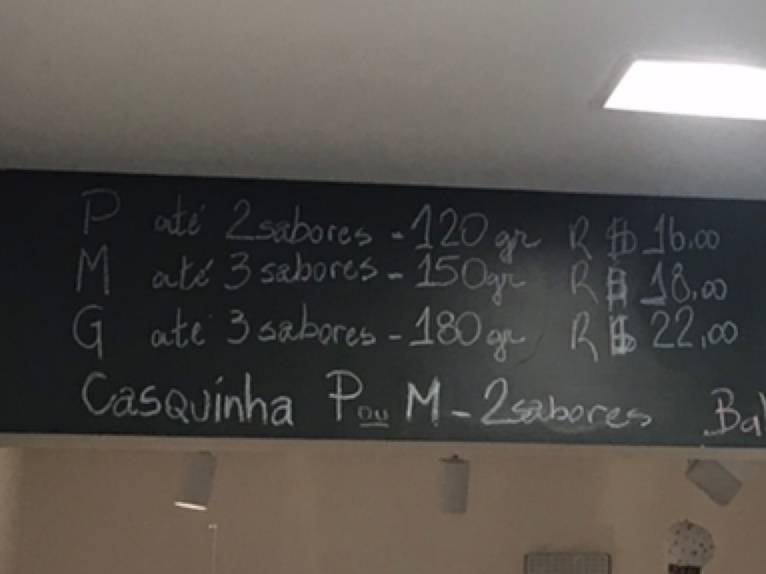 P até 2 sabores - 120 gr R$ 16,00
M até 3 sabores - 150gr R$ 18,00
G até 3 sabores - 180 gr R$ 22,00
Casquinha P ou M - 2 sabores